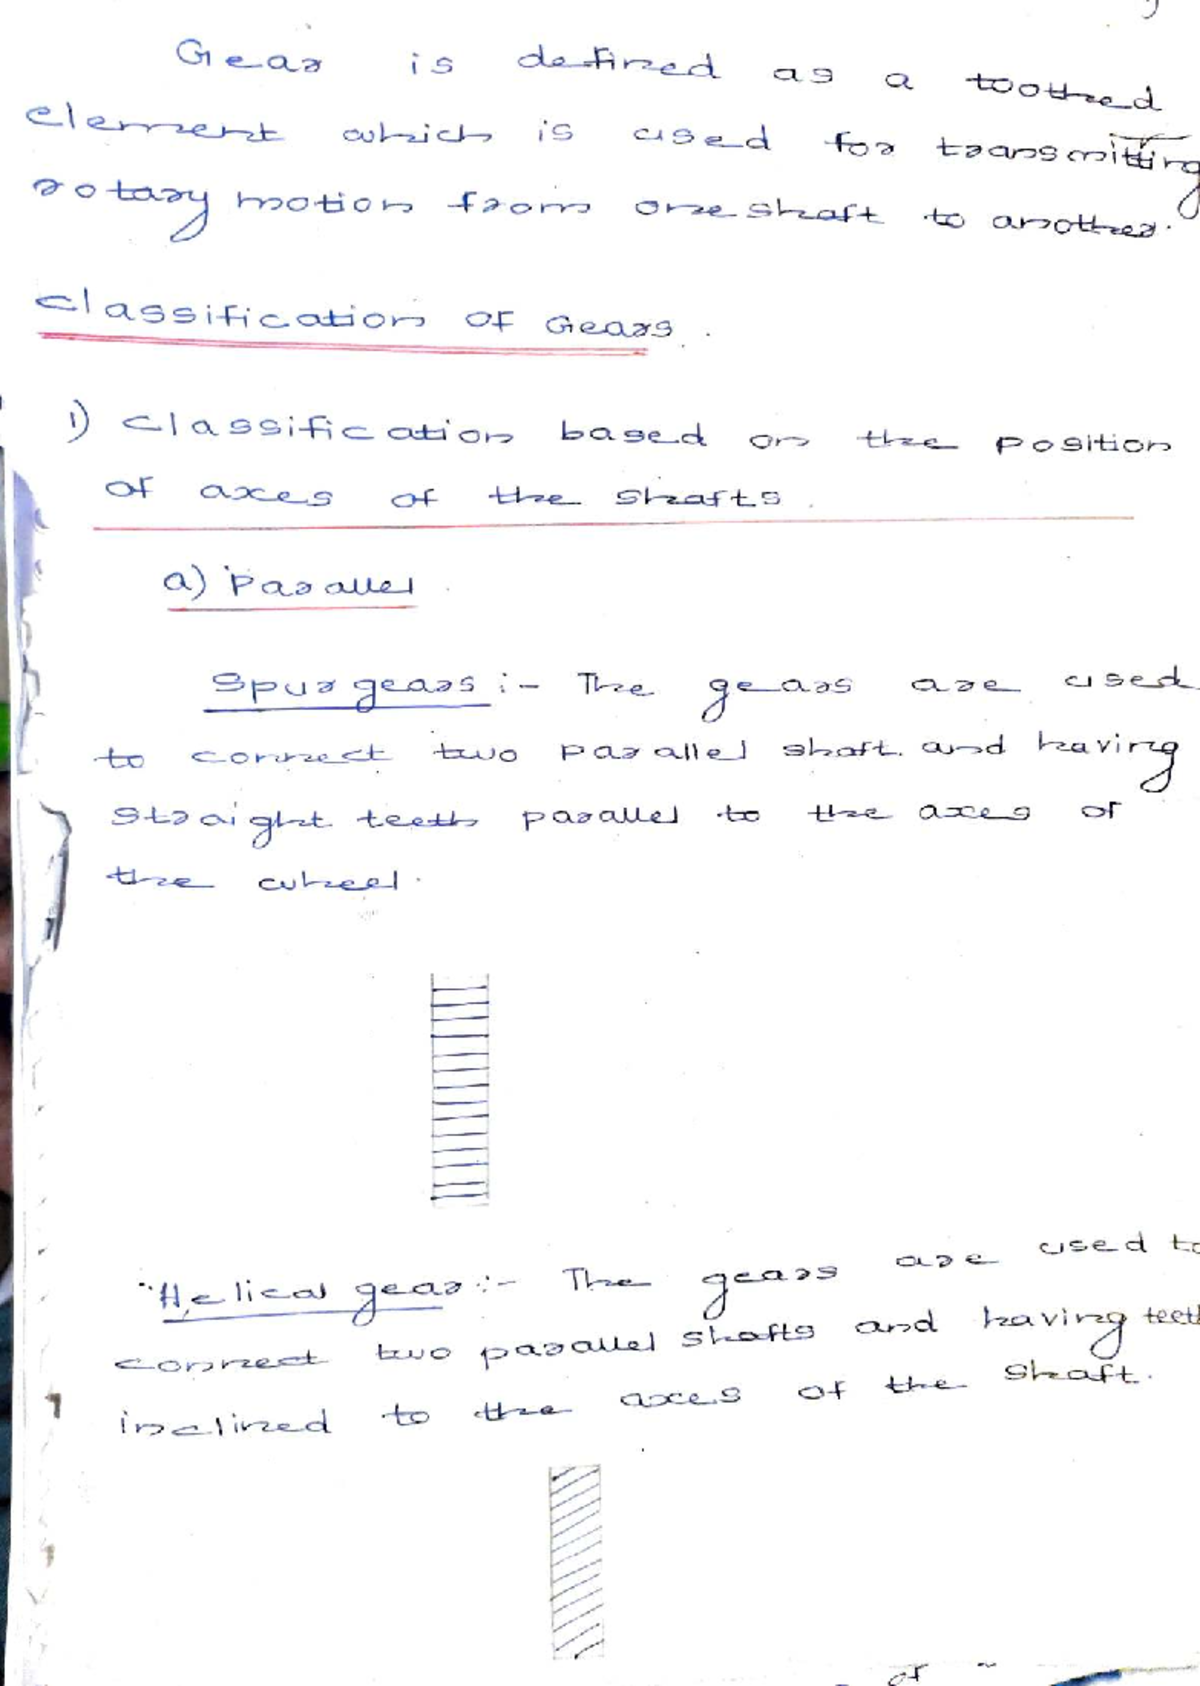 Gear is defined as a toothed
element which is used for transmitting
rotary motion from one shaft to another.
Classification of Gears.
1) Classification based on the position
of axes of the shafts.
a) Parallel.
Spur gears :- The gears are used
to connect two parallel shaft. and having
straight teeth parallel to the axes of
the wheel.
Helical gear :- The gears are used to
connect two parallel shafts and having teeth
inclined to the axes of the shaft.
of